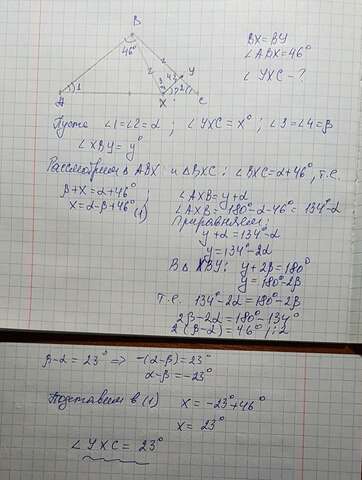 B
46°
A
1
3
4
Y
2
X
C
BX = BY
∠ABX = 46°
∠YXC - ?
Пусть ∠1=∠2=α ; ∠YXC = x° ; ∠3=∠4=β
∠XBY = y°
Рассмотрим Δ ABX и ΔBXC: ∠BXC = α+46°, т.е.
β+x = α+46° ;
x = α-β+46° (1)
∠AXB = y+α
∠AXB = 180°-α-46° = 134°-α
Приравняем:
y+α = 134°-α
y = 134°-2α
В Δ XBY: y+2β = 180°
y = 180°-2β
т.е. 134°-2α = 180°-2β
2β-2α = 180°-134°
2(β-α) = 46° /:2
β-α = 23° => -(α-β) = 23°
α-β = -23°
Подставляем в (1) x = -23°+46°
x = 23°
∠YXC = 23°